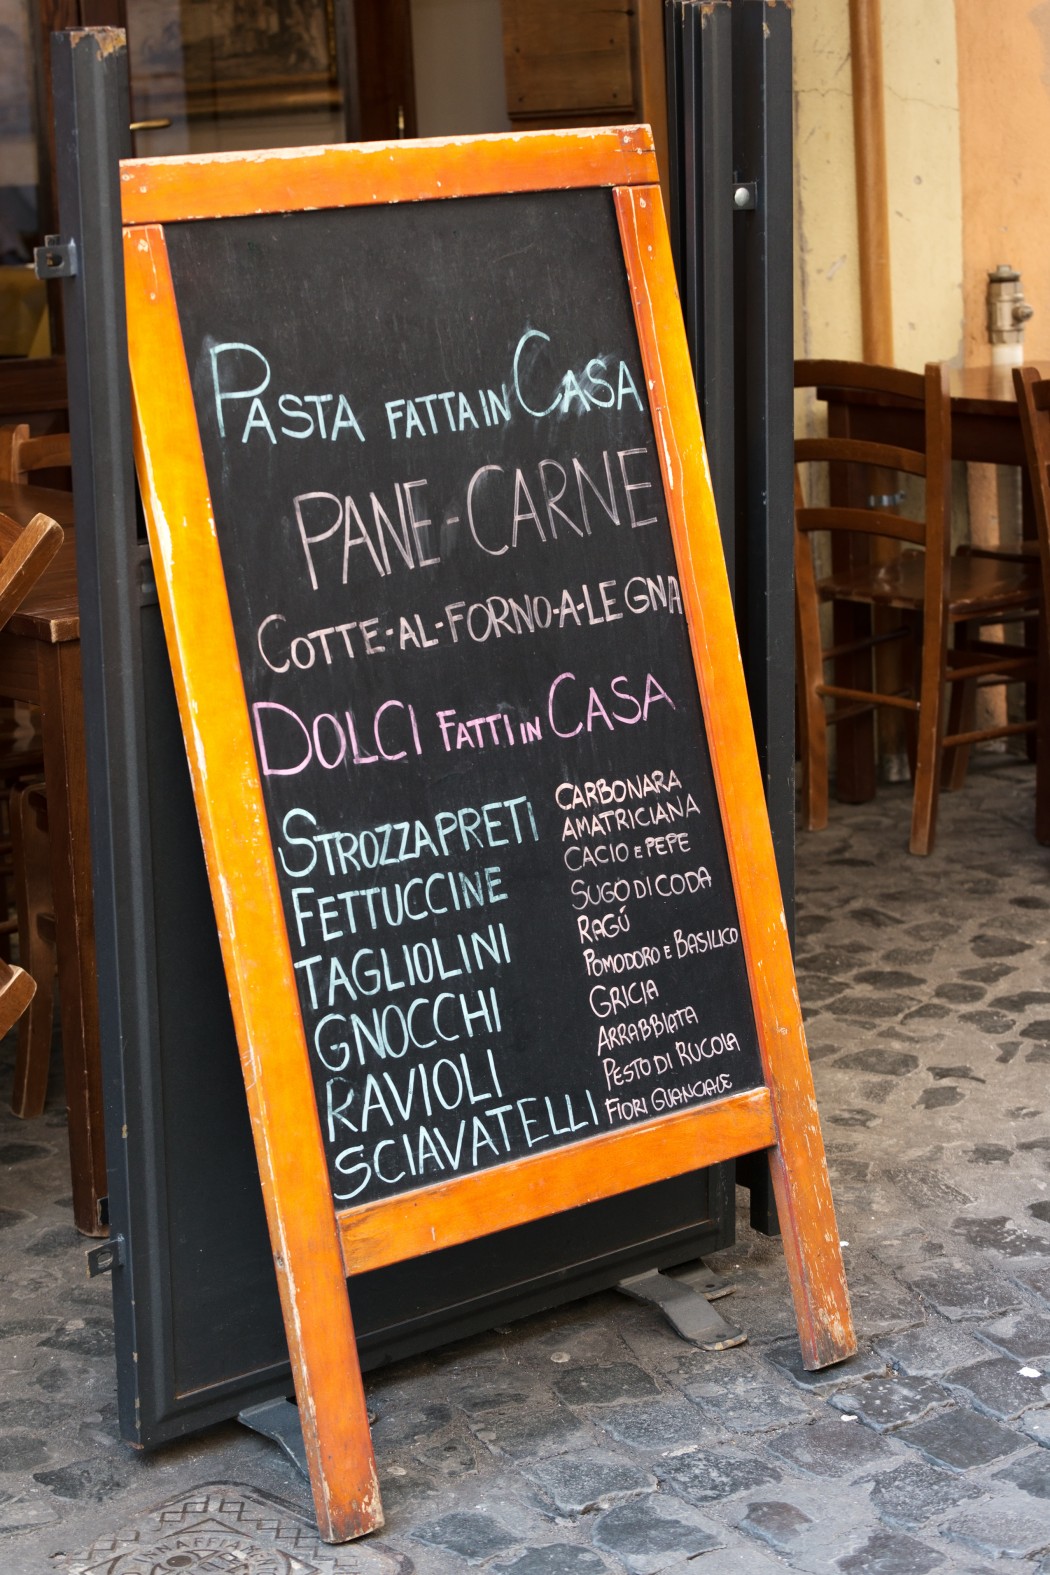 PASTA FATTA IN CASA
PANE-CARNE
COTTE-AL-FORNO-A-LEGNA
DOLCI FATTI IN CASA
STROZZAPRETI
FETTUCCINE
TAGLIOLINI
GNOCCHI
RAVIOLI
SCIAVATELLI
CARBONARA
AMATRICIANA
CACIO E PEPE
SUGO DI CODA
RAGÚ
POMODORO E BASILICO
GRICIA
ARRABBIATA
PESTO DI RUCOLA
FIORI GUANCIALE